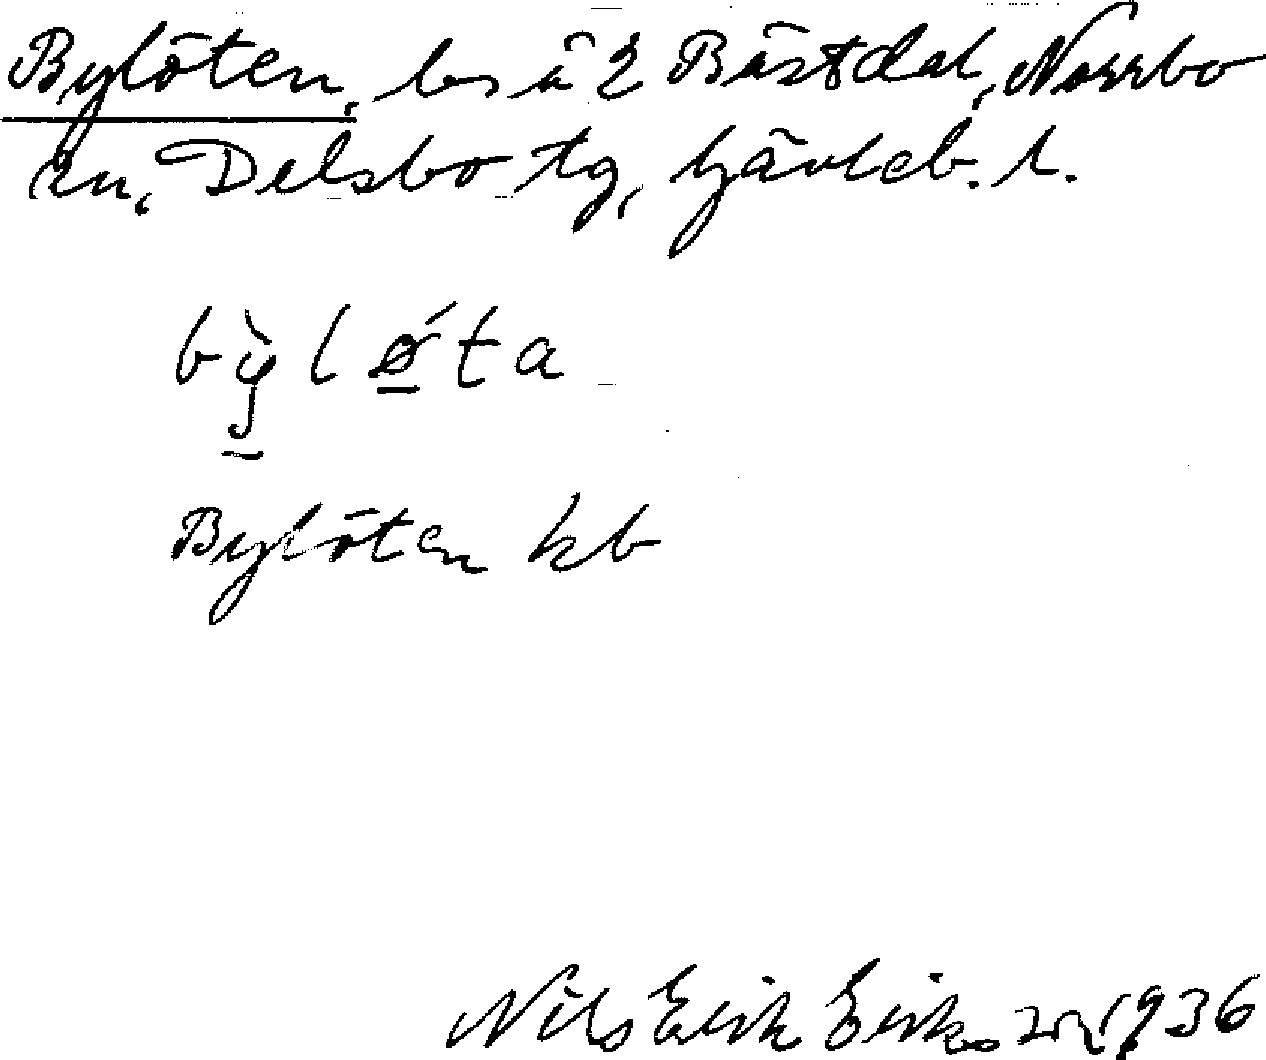 Bylöten, bs å 2 Bästdal, Norrbo
sn, Delsbo tg, Gävleb. l.
bỳlǿta
Bylöten kb
Nils Erik Eriksson 1936